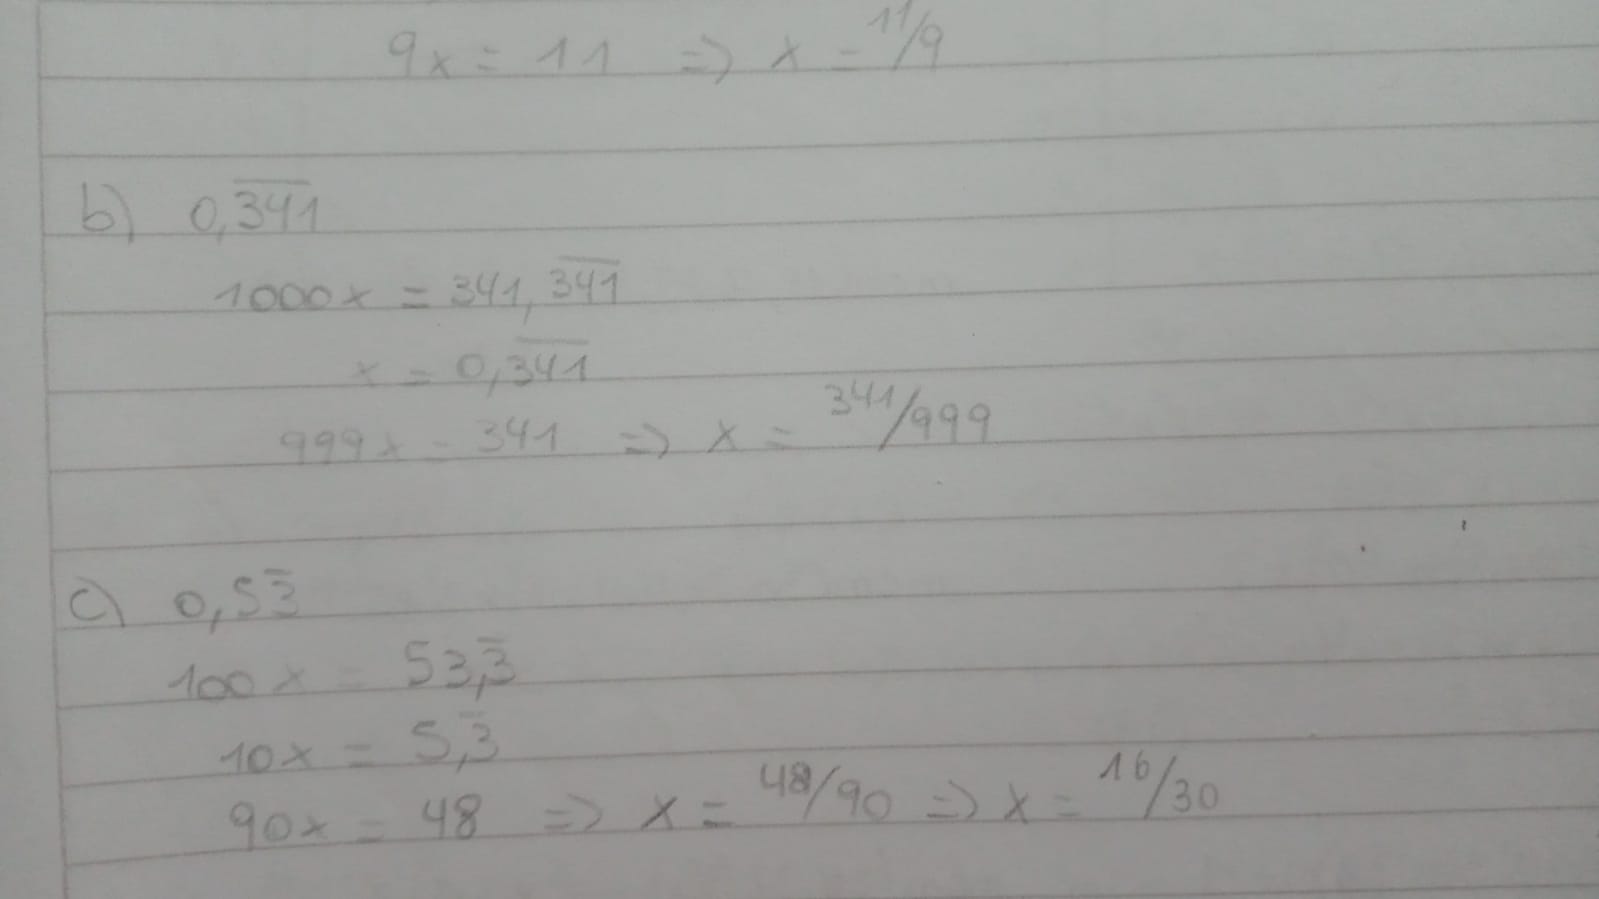 9x = 11 => x = 11/9
b) 0,3̅4̅1̅
1000x = 341,3̅4̅1̅
x = 0,3̅4̅1̅
999x = 341 => x = 341/999
c) 0,53̅
100x = 53,3̅
10x = 5,3̅
90x = 48 => x = 48/90 => x = 16/30